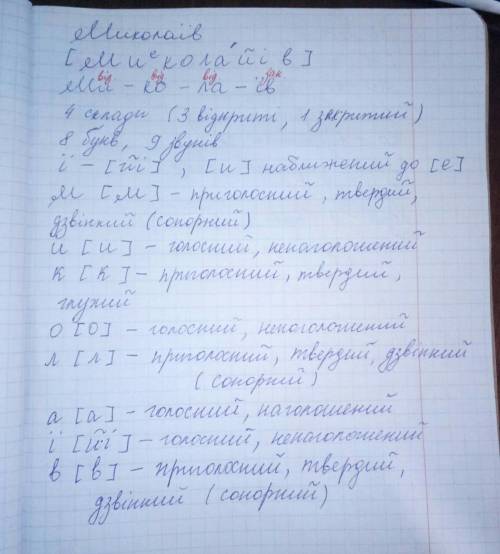 Миколаїв
[Миᵉкола́йів]
Ми - ко - ла - їв
від від від зак
4 склади (3 відкриті, 1 закритий)
8 букв, 9 звуків
ї - [йі], [и] наближений до [е]
м [м] - приголосний, твердий,
дзвінкий (сонорний)
и [и] - голосний, ненаголошений
к [к] - приголосний, твердий,
глухий
о [о] - голосний, ненаголошений
л [л] - приголосний, твердий, дзвінкий
(сонорний)
а [а] - голосний, наголошений
ї [йі] - голосний, ненаголошений
в [в] - приголосний, твердий,
дзвінкий (сонорний)